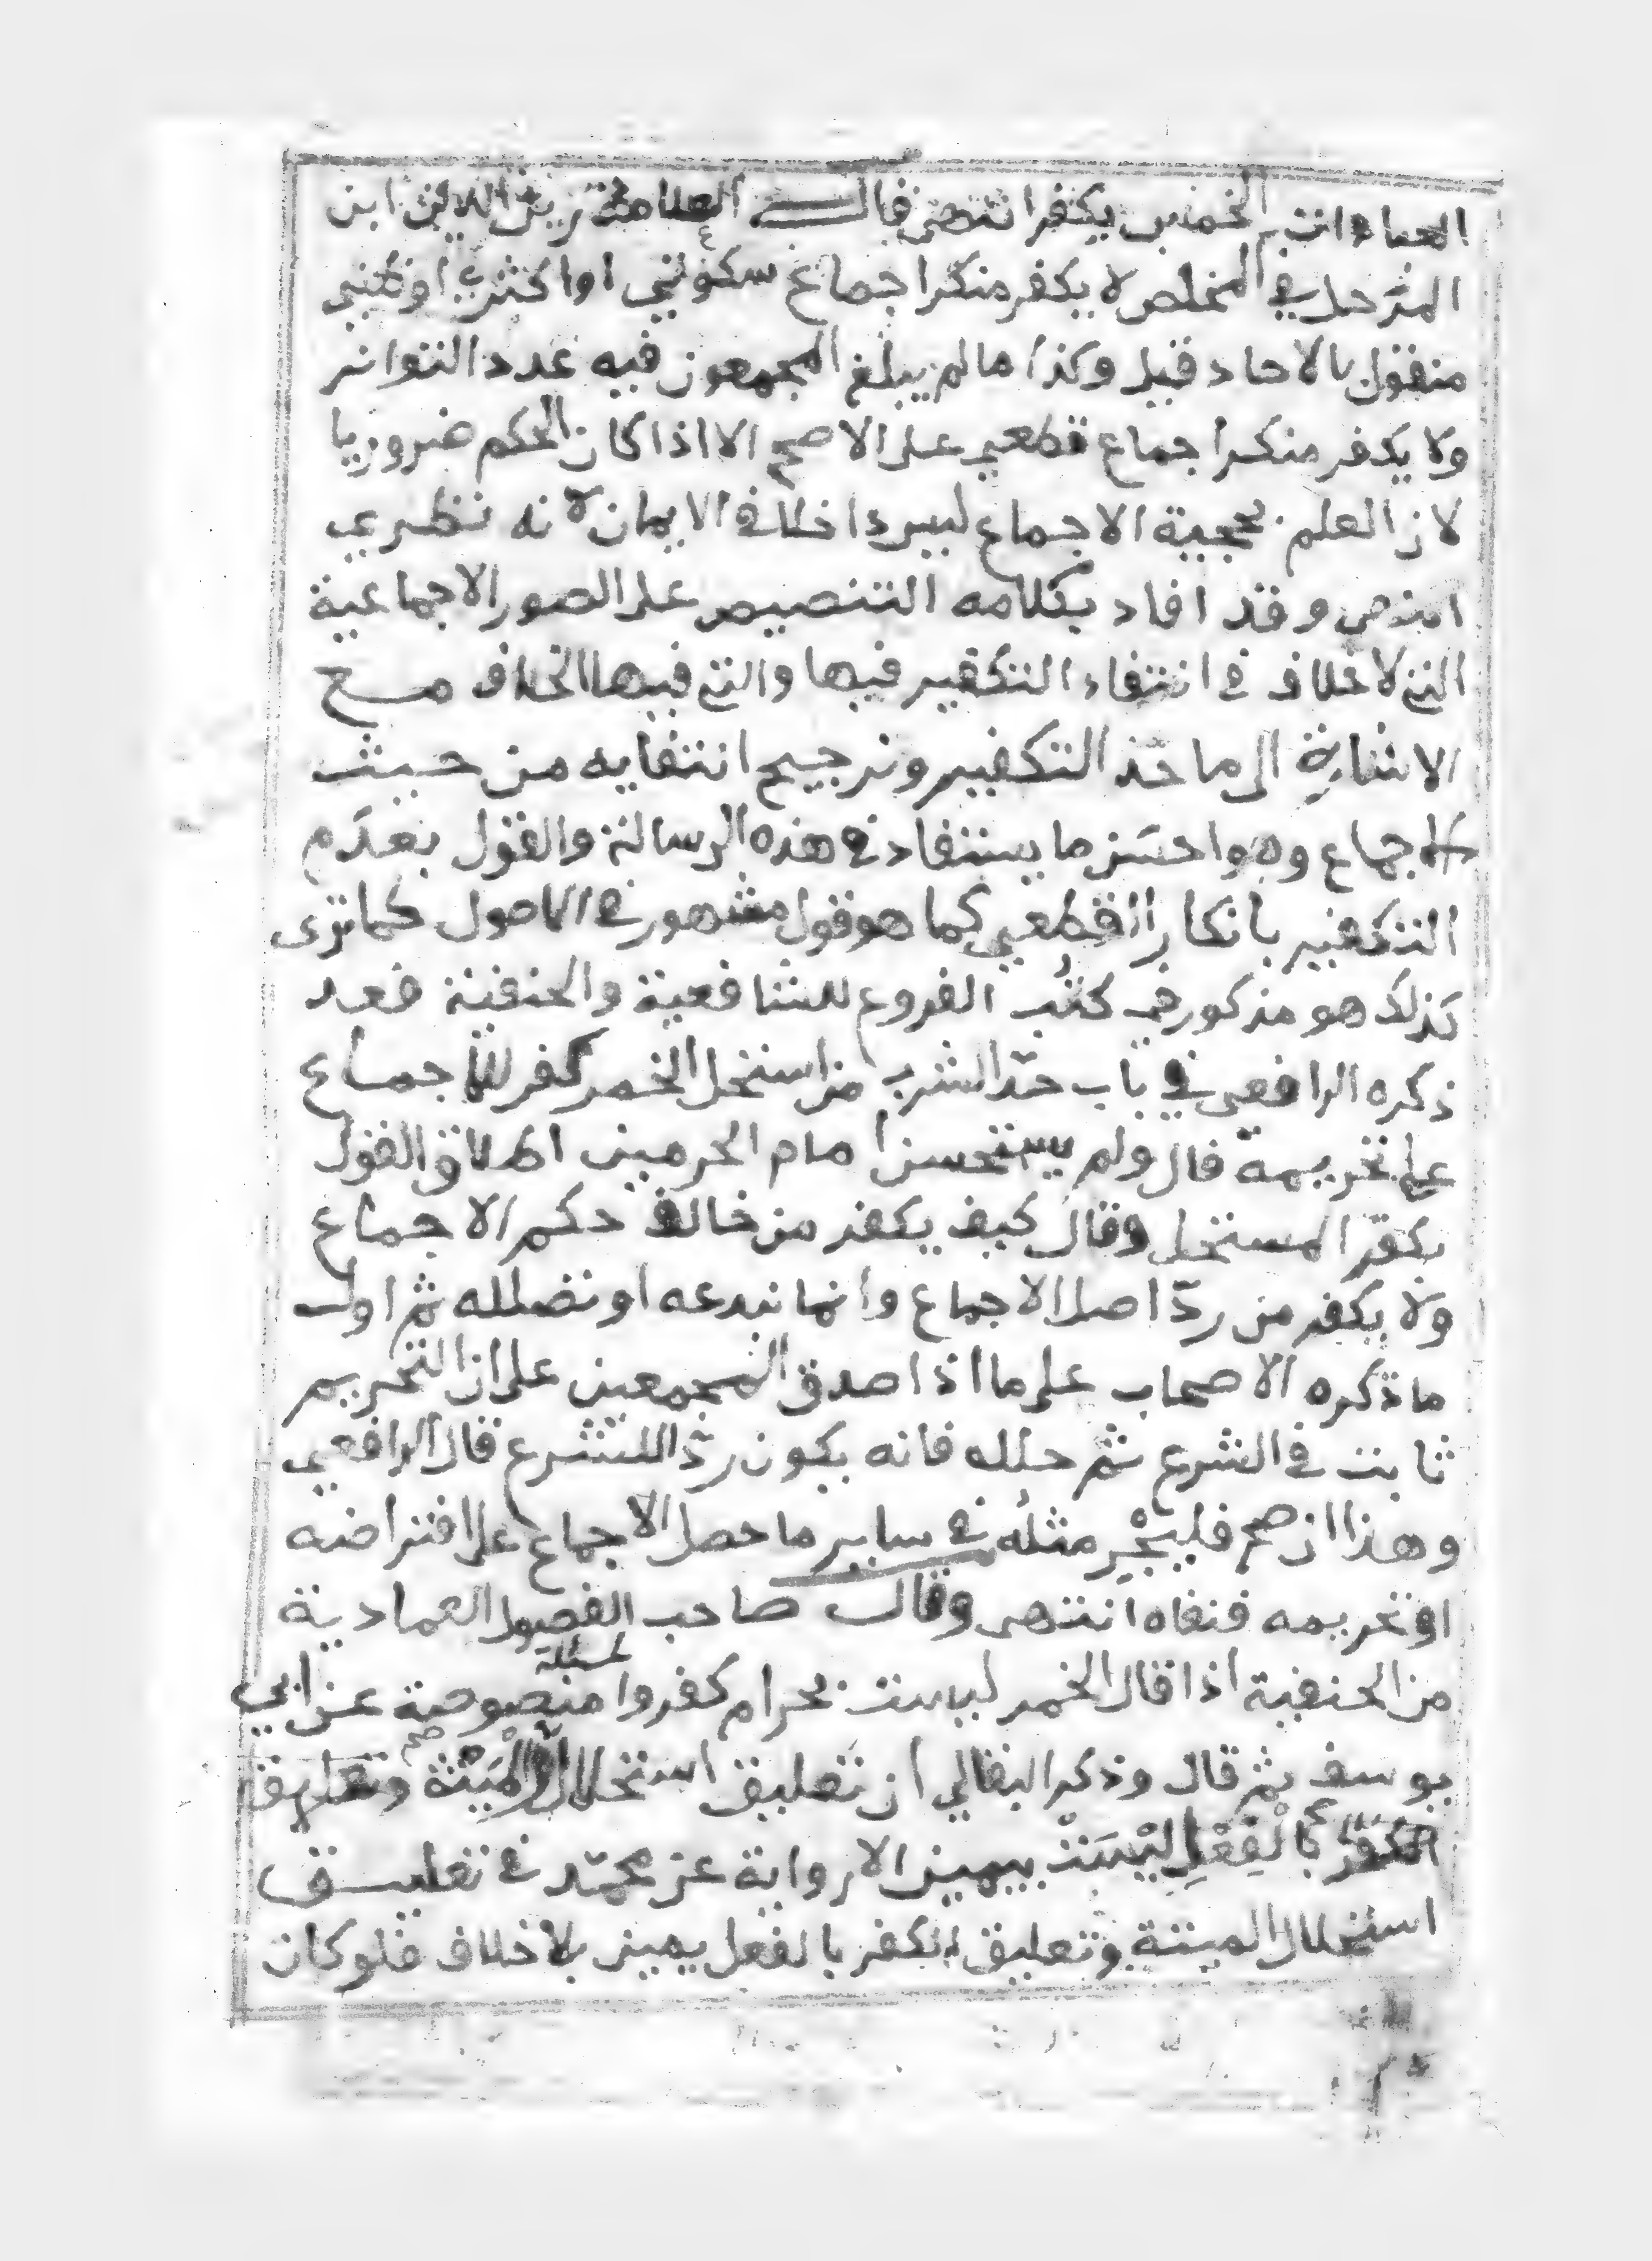 العبادات الخمس يكفر انتهى قال العلامة زين الدين ابن
المرحل في الملخص لا يكفر منكر اجماع سكوتي او اكثري او ظني
منقول بالاحاد قيل وكذا ما لم يبلغ المجمعون فيه عدد التواتر
ولا يكفر منكر اجماع قطعي على الاصح الا اذا كان الحكم ضروريا
لان العلم بحجية الاجماع ليس داخلا في الايمان لانه نظري
انتهى وقد افاد بكلامه التنصيص على الصور الاجماعية
التي لا خلاف في انتفاء التكفير فيها والتي فيها الخلاف مع
الاشارة الى ماخذ التكفير وترجيح انتفايه من حيث
الاجماع وهو احسن ما يستفاد في هذه الرسالة والقول بعدم
التكفير بانكار القطعي كما هو قول مشهور في الاصول كما ترى
كذلك هو مذكور في كتب الفروع للشافعية والحنفية فعد
ذكره الرافعي في باب حد الشرب من استحل الخمر كفر للاجماع
على تحريمه قال ولم يستحسن امام الحرمين اطلاق القول
بكفر المستحل وقال كيف يكفر من خالف حكم الاجماع
ولا يكفر من رد اصل الاجماع وانما نبدعه او نضلله ثم اول
ما ذكره الاصحاب على ما اذا صدق المجمعين على ان التحريم
ثابت في الشرع ثم حلله فانه يكون ردا للشرع قال الرافعي
وهذا ان صح فليجر مثله في ساير ما حصل الاجماع على افتراضه
او تحريمه فنفاه انتهى وقال صاحب الفصول العمادية
من الحنفية اذا قال الخمر ليست بحرام كفروا مسئلة منصوصة عن ابي
يوسف ثم قال وذكر البقالي ان تعليق استحلال الميتة صح وتعليق
الكفر بالفعل ليست بيمين الا رواية عن محمد في تعليق
استحلال الميتة وتعليق الكفر بالفعل يمين بلا خلاف فلو كان